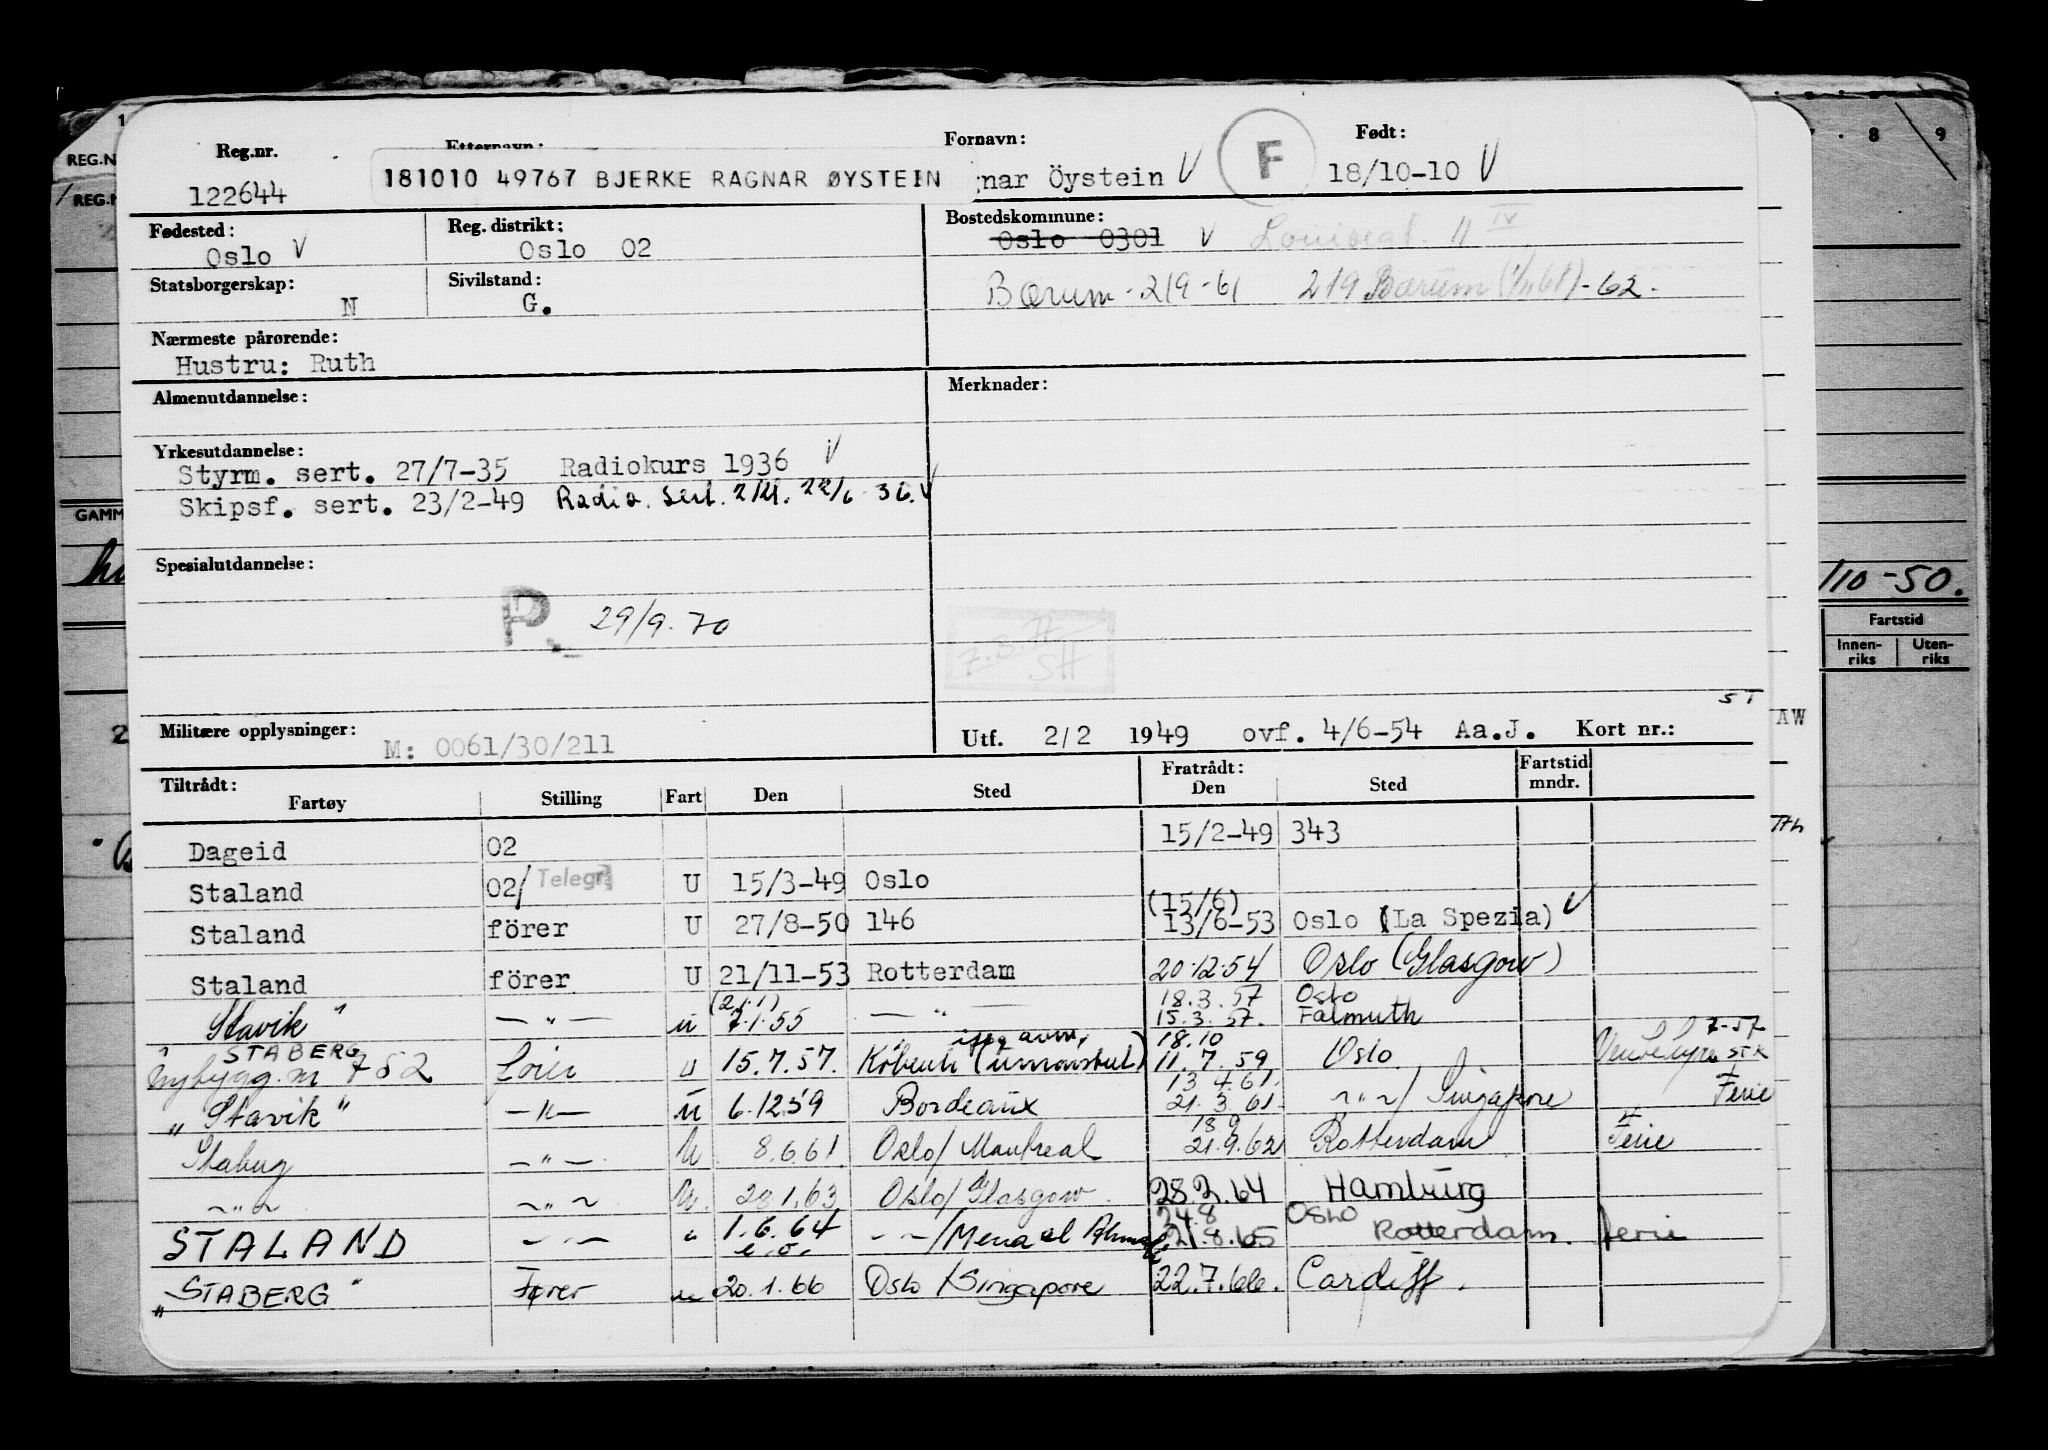 Reg.nr. Fornavn: Født:
122644 181010 49767 BJERKE RAGNAR ØYSTEIN gnar Öystein V F 18/10-10 V
Fødested: Reg. distrikt: Bostedskommune:
Oslo V Oslo 02 Oslo 0301 V
Statsborgerskap: Sivilstand:
N G. Bærum - 219 - 61 219 Bærum -62.
Nærmeste pårørende:
Hustru: Ruth
Almenutdannelse: Merknader:
Yrkesutdannelse:
Styrm. sert. 27/7-35 Radiokurs 1936 V
Skipsf. sert. 23/2-49 Radio. Sert. 2/kl. 22/6 36. V
Spesialutdannelse:
P. 29/9. 70
ST
Militære opplysninger: M: 0061/30/211 Utf. 2/2 1949 ovf. 4/6-54 Aa.J. Kort nr.:
Tiltrådt: Fratrådt: Fartstid
Fartøy Stilling Fart Den Sted Den Sted mndr.
Dageid 02 15/2-49 343
Staland 02/ Telegr. U 15/3-49 Oslo
(15/6)
Staland förer U 27/8-50 146 13/6-53 Oslo (La Spezia) V
Staland förer U 21/11-53 Rotterdam 20.12.54 Oslo (Glasgow)
(2.1.) 18.3.57 Oslo
Stavik" — " — u 7.1.55 — " 15.3.57. Falmouth
STABERG 18.10 7-57
Nybygg. nr 752 fører u 15.7.57. 11.7.59 Oslo STK
13 4.61.
"Stavik" — " — u 6.12.59 Bordeaux 21.3.61. ~ " ~ / Singapore Ferie
18 9
Stabug — " — U 8.6.61. Oslo/ Montreal 21.9.62 Rotterdam Ferie
~ " ~ ~ " ~ U. 20.1.63. Oslo/ Glasgow. 28.2.64 Hamburg
24.8 Oslo
STALAND — " — " 1.6.64 — " —/Mena al Ahmadi 21.8.65 Rotterdam. ferie
e.o.
"STABERG" Fører u 20.1.66 Oslo /Singapore 22.7.66. Cardiff.
REG.N
REG.N
GAMM
8 9
/10-50.
Fartstid
Innen-riks Uten-riks
AW